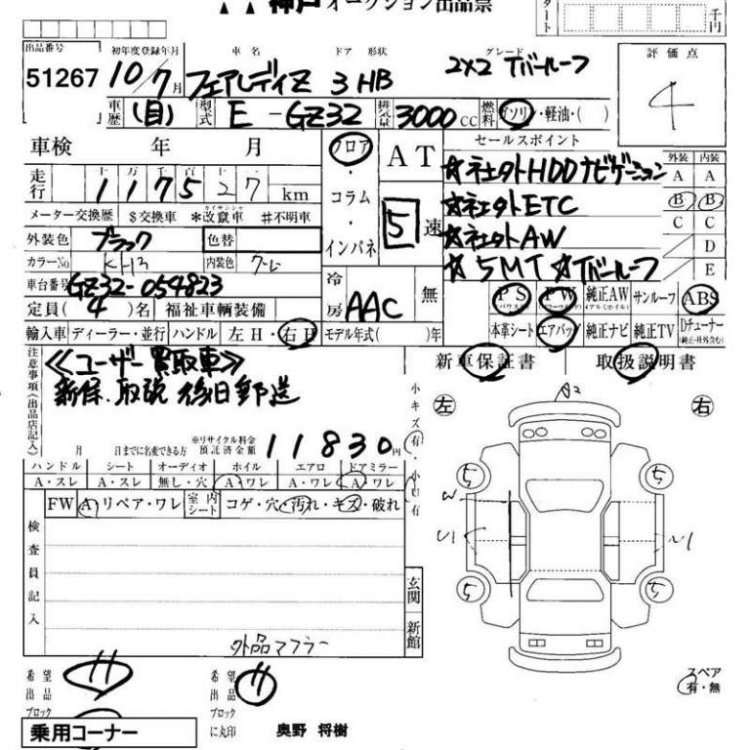 神戸オークション出品票
スタート 千円
出品番号 初年度登録年月 車名 ドア 形状 グレード 評価点
51267 10/7月 フェアレディZ 3HB 2×2 Tバールーフ 4
車歴 (自) 型式 E-GZ32 排気量 3000cc 燃料 ガソリン・軽油・( )
車検 年 月 フロア AT セールスポイント 外装 内装
走行 十 万 千 百 十 117527 km コラム 5速 ☆社外HDDナビゲーション A A
メーター交換歴 $交換車 *改竄車 #不明車 ☆社外ETC B B
外装色 ブラック 色替 インパネ ☆社外AW C C
カラーNo KH3 内装色 グレー ☆5MT ☆Tバールーフ D
車台番号 GZ32-054823 E
定員( 4 )名 福祉車輌装備 冷房 AAC 無 PS PW 純正AW サンルーフ ABS
輸入車 ディーラー・並行 ハンドル 左H・右H モデル年式( )年 本革シート エアバッグ 純正ナビ 純正TV Dチューナー
注意事項(出品店記入) 新車保証書 取扱説明書
≪ユーザー買取車≫
新保、取説 後日郵送
月 日までに名変できる方 ※リサイクル料金預託済金額 11830円
小キズ有・小凹有
ハンドル シート オーディオ ホイル エアロ ドアミラー
A・スレ A・スレ 無し・穴 A・ワレ A・ワレ A・ワレ
FW A リペア・ワレ 室内シート コゲ・穴・汚れ・キズ・破れ
検査員記入
外品マフラー
玄関 新館
左 右
A2
5 5
W
U1 U1
5 5
スペア
有・無
希望出品ブロック 11 希望出品ブロックに丸印 11
乗用コーナー 奥野 将樹